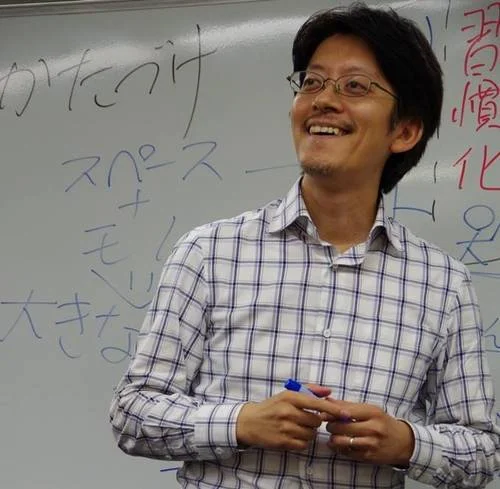 かたづけ
スペース
+
モノ
大きな
習慣化